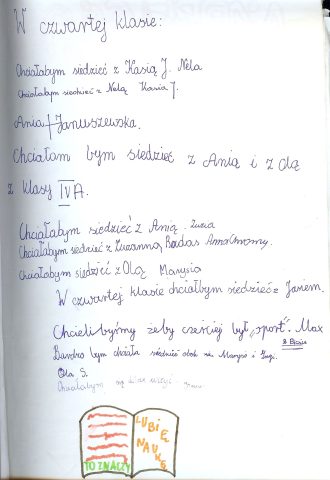 W czwartej klasie:
Chciałabym siedzieć z Kasią J. Nela
Chciałabym siedzieć z Nelą Kasia J.
Ania Januszewska.
Chciałam bym siedzieć z Anią i z Olą
z klasy IV A.
Chciałabym siedzieć z Anią. Zuzia
Chciałabym siedzieć z Zuzanną Badas
Chciałabym siedzić z Olą Marysia
W czwartej klasie chciałbym siedzieć z Janem.
Chcielibyśmy żeby częściej był „sport”. Max
Bardzo bym chciała siedzieć obok Marysi i Zuzi.
Ola S.
Chciałabym
LUBIĘ
NAUKĘ
TO ZNACZY